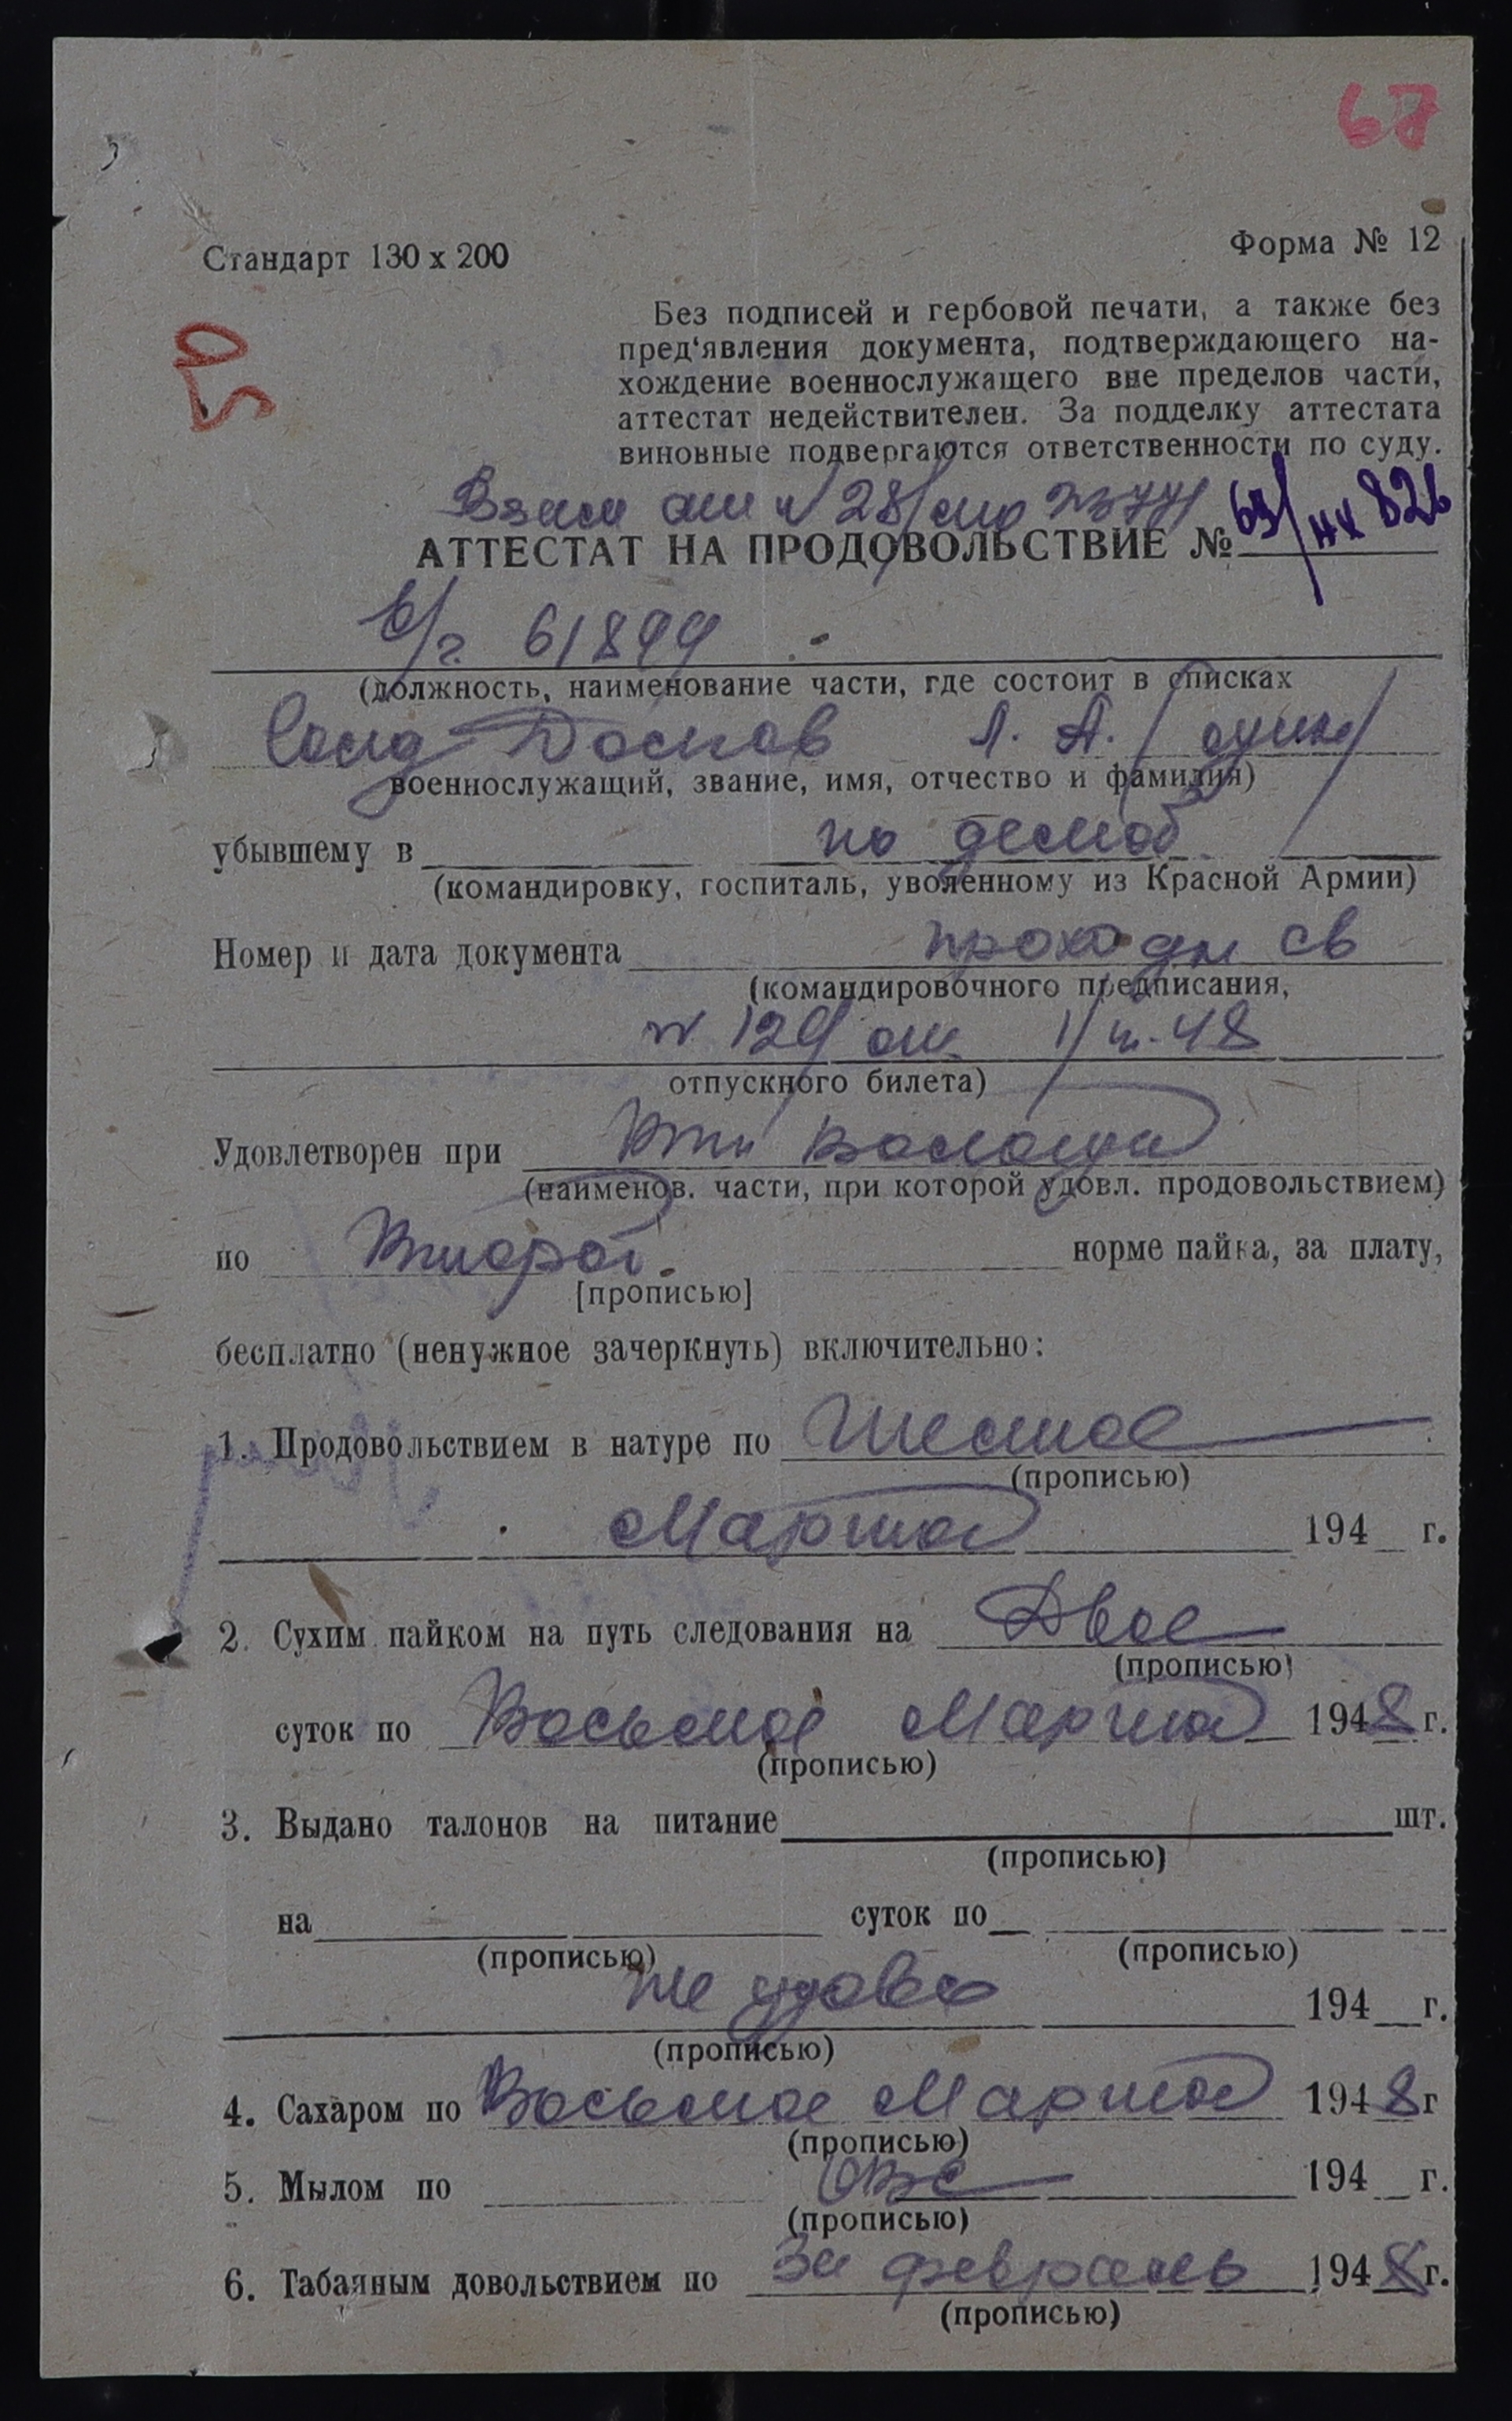 67
Стандарт 130 х 200
Форма № 12
Без подписей и гербовой печати, а также без
пред'явления документа, подтверждающего на-
хождение военнослужащего вне пределов части,
аттестат недействителен. За подделку аттестата
виновные подвергаются ответственности по суду.
Взам ат № 28
АТТЕСТАТ НА ПРОДОВОЛЬСТВИЕ № 63/нк 826
в/г 61899
(должность, наименование части, где состоит в списках
Л. А.
военнослужащий, звание, имя, отчество и фамилия)
убывшему в по демоб
(командировку, госпиталь, уволенному из Красной Армии)
Номер и дата документа проходн св
(командировочного предписания,
№ 129 от 1/III-48
отпускного билета)
Удовлетворен при
(наименов. части, при которой удовл. продовольствием)
по Второй норме пайка, за плату,
[прописью]
бесплатно (ненужное зачеркнуть) включительно:
1. Продовольствием в натуре по Шестое
(прописью)
Марта 194 г.
2. Сухим пайком на путь следования на Двое
(прописью)
суток по Восьмое Марта 1948 г.
(прописью)
3. Выдано талонов на питание шт.
(прописью)
на суток по
(прописью) (прописью)
Не удовл 194 г.
(прописью)
4. Сахаром по Восьмое Марта 1948 г
(прописью)
5. Мылом по 194 г.
(прописью)
6. Табачным довольствием по За февраль 1948 г.
(прописью)